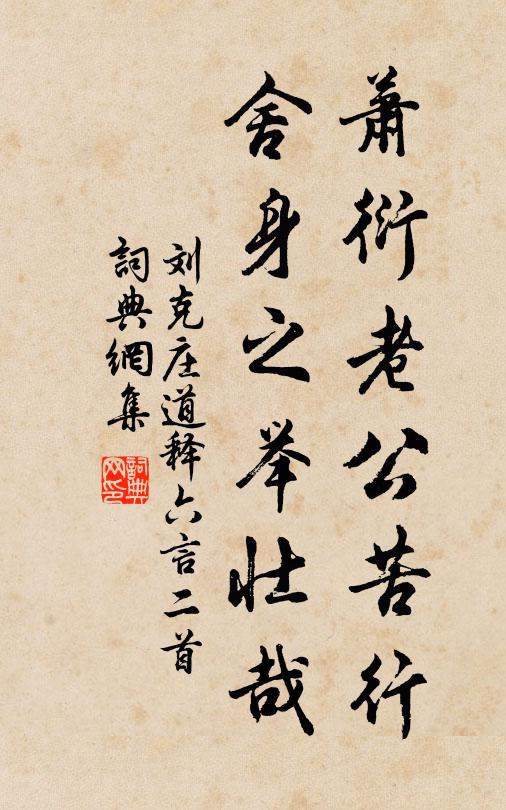 萧衍老公苦行
舍身之举壮哉
刘克庄道释六言二首
詞典網集
詞典网印